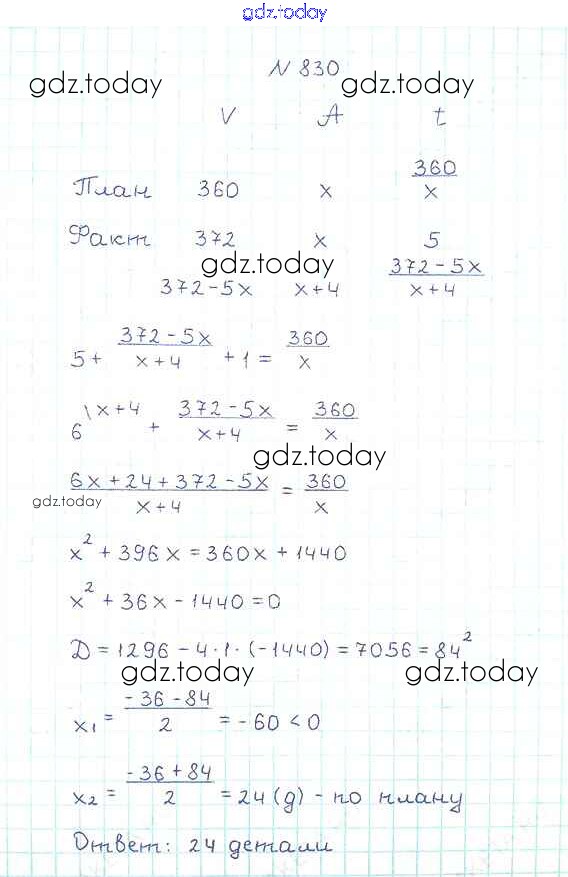 gdz.today
N 830
gdz.today gdz.today
V A t
План 360 x 360/x
Факт 372 x 5
gdz.today
372-5x x+4 (372-5x)/(x+4)
5 + (372-5x)/(x+4) + 1 = 360/x
6\x+4 + (372-5x)/(x+4) = 360/x
gdz.today
(6x+24+372-5x)/(x+4) = 360/x
gdz.today
x² + 396x = 360x + 1440
x² + 36x - 1440 = 0
D = 1296 - 4·1·(-1440) = 7056 = 84²
gdz.today gdz.today
x₁ = (-36-84)/2 = -60 < 0
x₂ = (-36+84)/2 = 24 (д) - по плану
Ответ: 24 детали